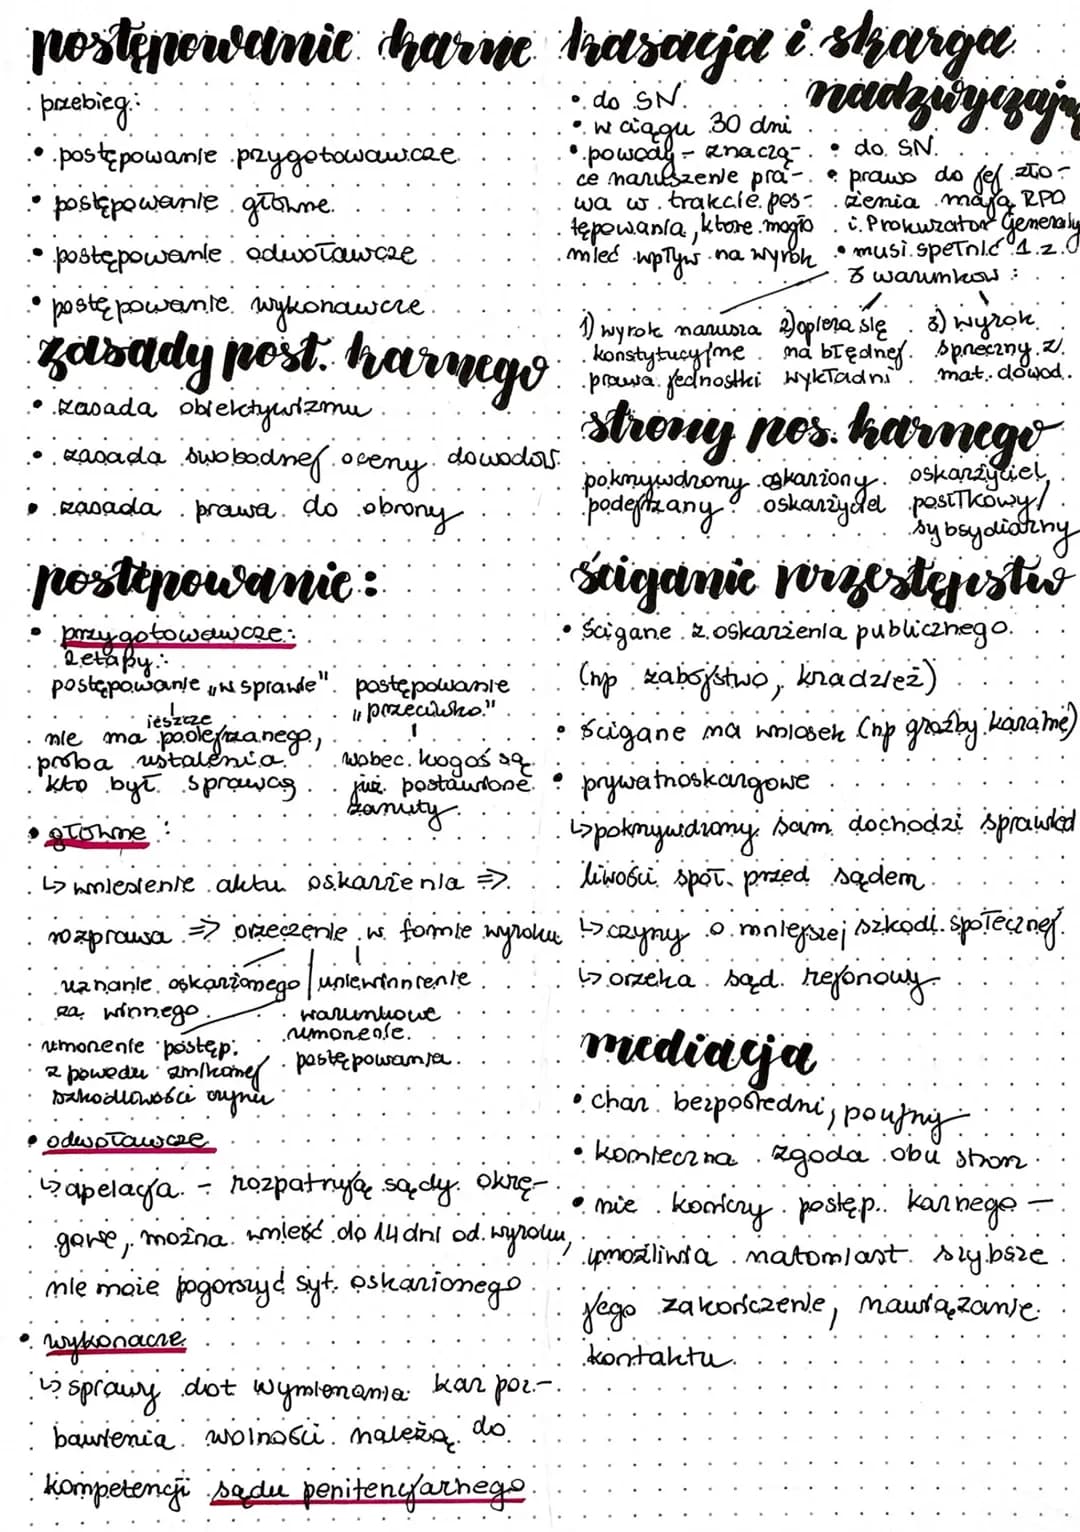 postępowanie karne
przebieg:
• postępowanie przygotowawcze
• postępowanie główne
• postępowanie odwoławcze
• postępowanie wykonawcze
zasady post. karnego
• zasada obiektywizmu
• zasada swobodnej oceny dowodów
• zasada prawa do obrony
postępowanie:
• przygotowawcze:
2 etapy:
postępowanie „w sprawie"
jeszcze
nie ma podejrzanego,
próba ustalenia
kto był sprawcą
postępowanie
„przeciwko"
wobec kogoś są
już postawione
zarzuty
• główne:
↳ wniesienie aktu oskarżenia =>
rozprawa => orzeczenie w formie wyroku
uznanie oskarżonego
za winnego
uniewinnienie
warunkowe
umorzenie
postępowania
umorzenie postęp.
z powodu znikomej
szkodliwości czynu
• odwoławcze
↳ apelacja - rozpatrują sądy okrę-
gowe, można wnieść do 14 dni od wyroku,
nie może pogorszyć syt. oskarżonego
• wykonacze
↳ sprawy dot wymierzania kar poz-
bawienia wolności należą do
kompetencji sądu penitencjarnego
kasacja i skarga
nadzwyczajna
• do SN
• w ciągu 30 dni
• powody - znaczą-
ce naruszenie pra-
wa w trakcie pos-
tępowania, które mogło
mieć wpływ na wyrok
• do SN
• prawo do jej zło-
żenia mają RPO
i Prokurator Generalny
• musi spełnić 1 z
3 warunków:
1) wyrok narusza
konstytucyjne
prawa jednostki
2) opiera się
na błędnej
wykładni
3) wyrok
sprzeczny z
mat. dowod.
strony pos. karnego
pokrzywdzony oskarżony oskarżyciel
podejrzany oskarżyciel posiłkowy/
subsydiarny
ściganie przestępstw
• ścigane z oskarżenia publicznego
(np zabójstwo, kradzież)
• ścigane na wniosek (np groźby karalne)
• prywatnoskargowe
↳ pokrzywdzony sam dochodzi sprawied
liwości społ. przed sądem
↳ czyny o mniejszej szkodl. społecznej
↳ orzeka sąd rejonowy
mediacja
• char. bezpośredni, poufny
• konieczna zgoda obu stron
• nie kończy postęp. karnego -
umożliwia natomiast szybsze
jego zakończenie, nawiązanie
kontaktu